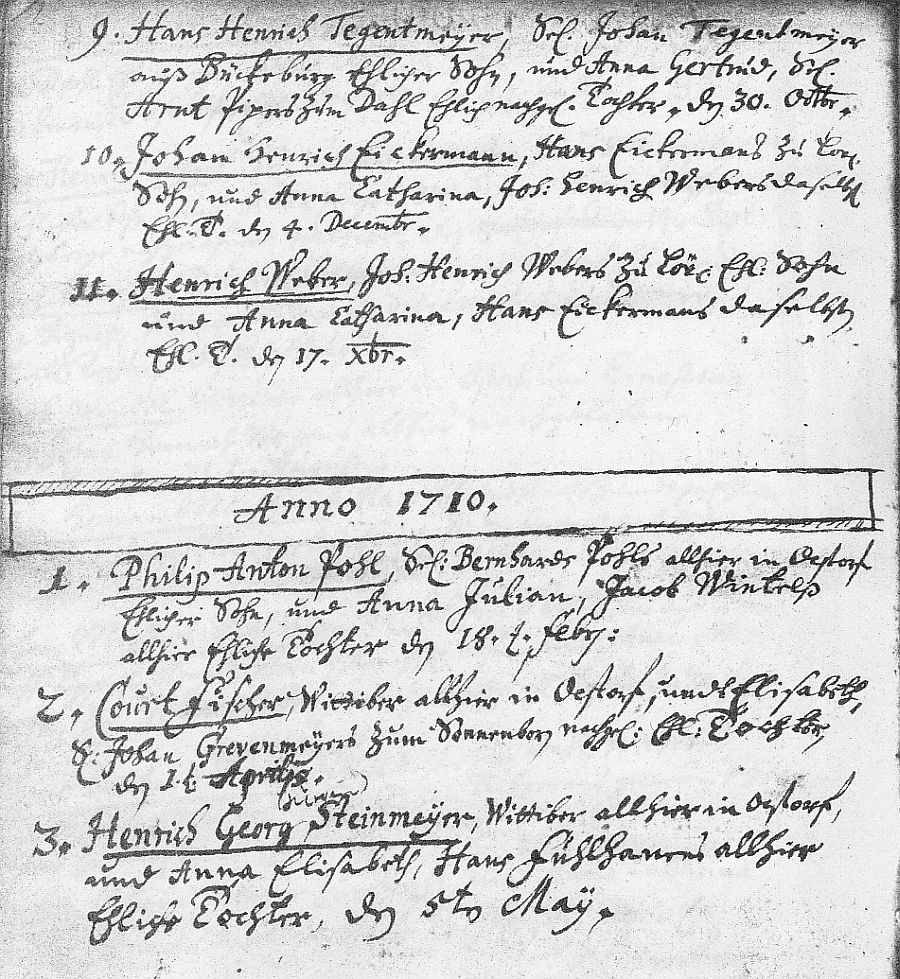 9. Hans Henrich Tegentmeÿer, Sel. Johan Tegentmeyer
auß Bückeburg Ehlicher Sohn, und Anna Gertrud, Sel.
Arnt Pipers zum Dahl Ehlich nachgel. Tochter, den 30. Octbr.
10. Johan Henrich Eickermann, Hans Eickermans zu
Sohn, und Anna Catharina, Joh: Henrich Webers daselbst
Ehl. T. den 4. Decembr.
11. Henrich Weber, Joh: Henrich Webers zu Ehl: Sohn
und Anna Catharina, Hans Eickermans daselbst
Ehl. T. den 17. Xbr.
Anno 1710.
1. Philip Anton Pohl, Sel: Bernhards Pohls allhier in Oestorf
Ehlicher Sohn, und Anna Julian, Jacob Winkelß
allhier Ehliche Tochter den 18. t. Febr:
2. Court Fischer, Wittiber allhier in Oestorf, und Elisabeth,
S. Johan Grevenmeÿers zum Sonnenborn nachgel: Ehl: Tochter,
den 1. t. Aprilis.
3. Henrich Georg Steinmeÿer, Wittiber allhier in Oestorf,
und Anna Elisabeth, Hans Fühlhabers allhier
Ehliche Tochter, den 5ten Maÿ.